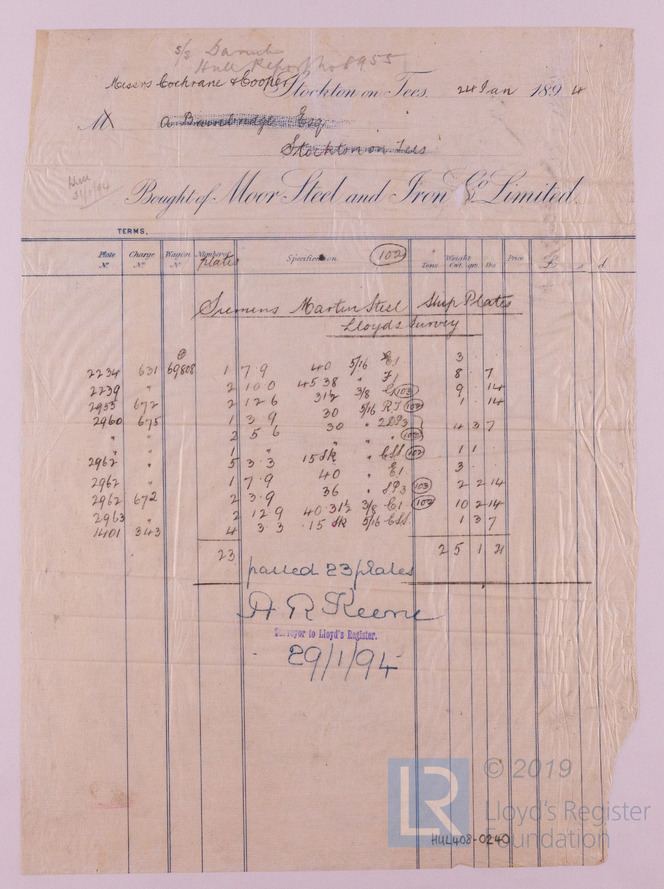 s/s
Hull Report No 8955
Messrs Cochrane & Cooper Stockton on Tees. 24 Jan 1894
M
a Bambridge Esq
Stockton on Tees
31/1/94
Bought of Moor Steel and Iron Co Limited.
TERMS.
Plate No Charge No Wagon No Number plates Specification 102 Tons Weight Cwt. qrs. lbs Price £ s d.
Siemens Martin Steel Ship Plates
Lloyds Survey
2234 631 69808 1 7 9 40 5/16 E1 3
2239 " 2 10 0 45 38 " F1 8 . 7
2955 672 2 12 6 31½ 3/8 102 9 . 14
2960 675 1 3 9 30 5/16 102 1 . 14
" " 2 5 6 30 " 4 3 7
" " 1 " " " 102
2962 " 5 3 3 15 sk " 102 1 1
2962 " 1 7 9 40 " E1 3
2962 672 2 3 9 36 " 103 2 2 14
2963 " 2 12 9 40.31½ 3/8 C1 102 10 2 14
1401 343 4 3 3 15 sk 5/16 1 3 7
23 2 5 1 21
passed 23 plates
A R Keene
Surveyor to Lloyd's Register.
29/1/94
LR © 2019
Lloyd's Register
Foundation
HUL408-0240